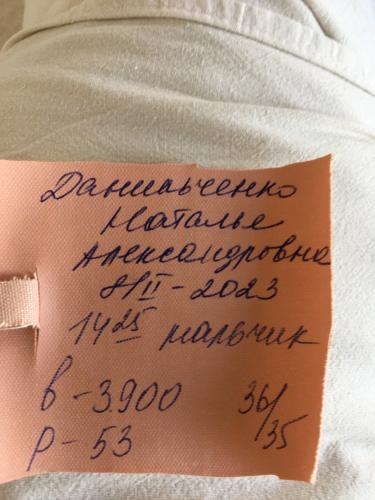 Данильченко
Наталье
Александровна
8/II-2023
14 25 мальчик
в - 3.900 36/35
р - 53